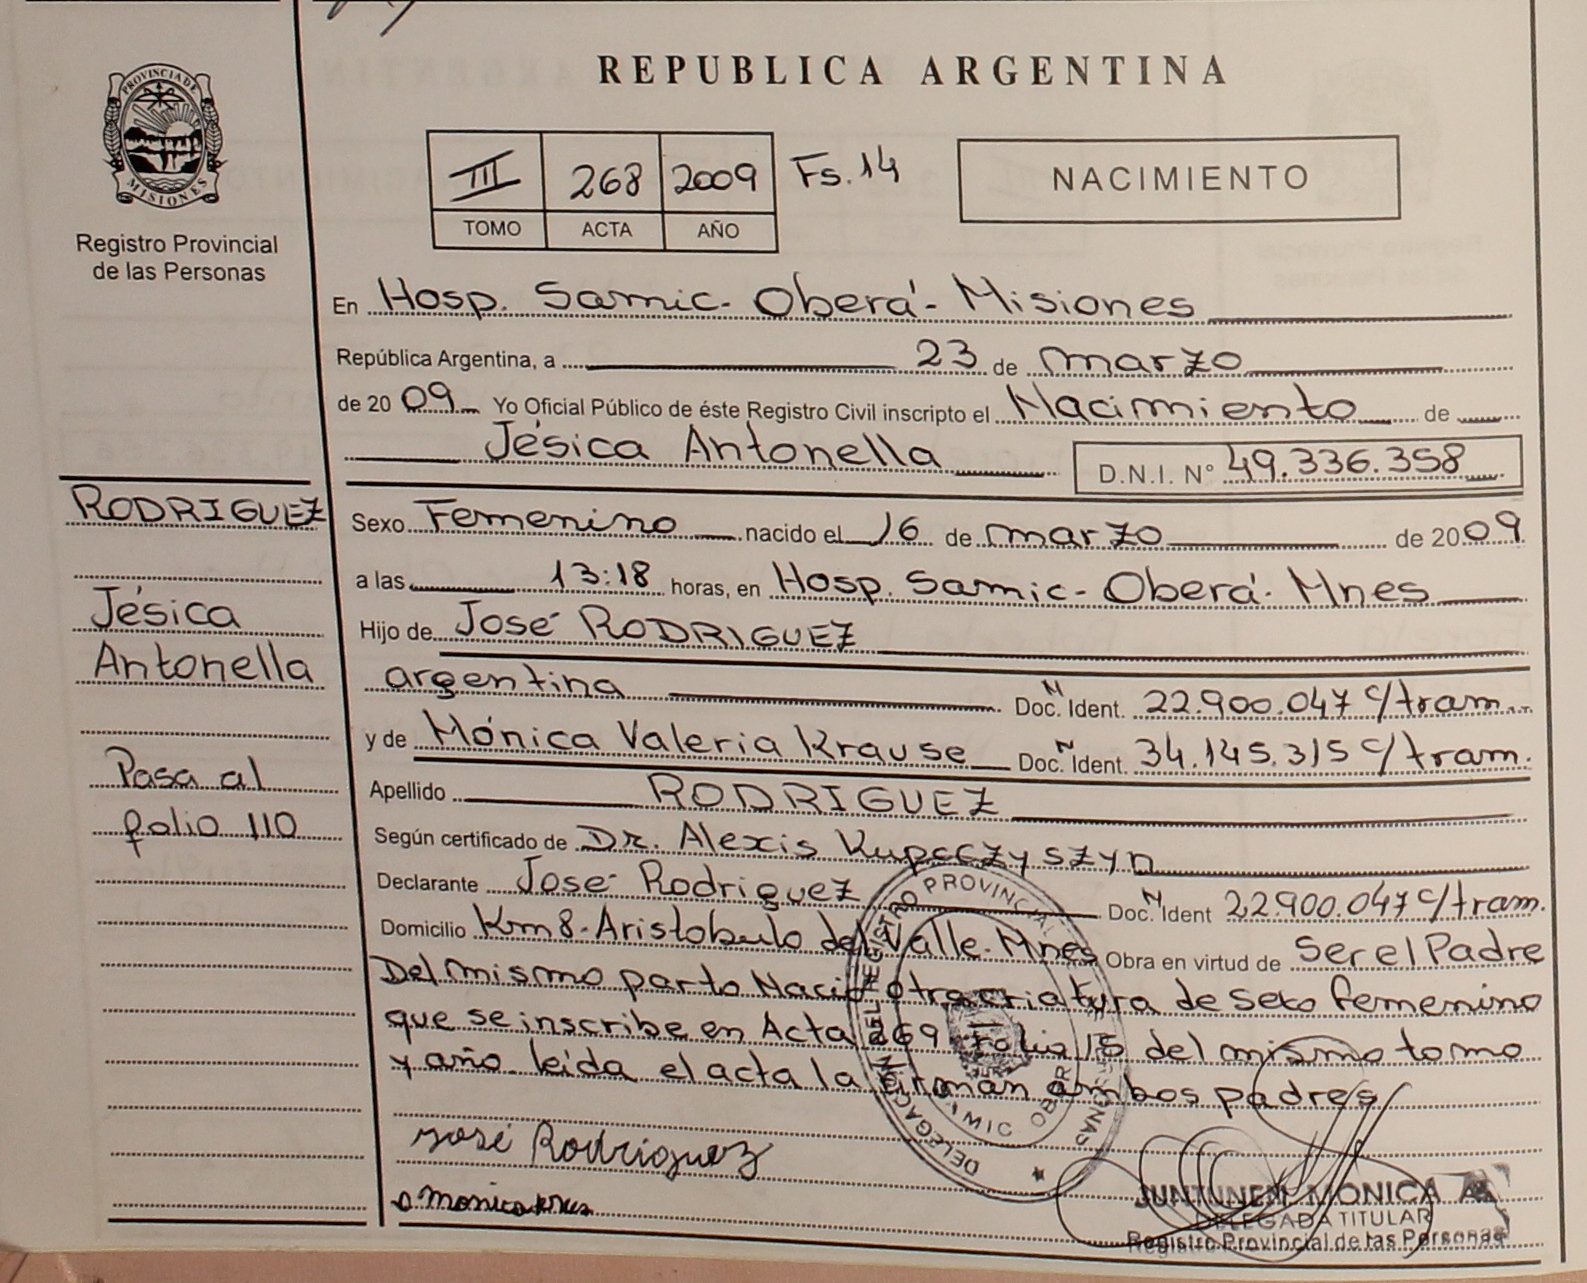 REPUBLICA ARGENTINA
PROVINCIA DE
MISIONES
Registro Provincial
de las Personas
III 268 2009 Fs. 14
TOMO ACTA AÑO
NACIMIENTO
En Hosp. Samic- Oberá- Misiones
República Argentina, a 23 de marzo
de 20 09 Yo Oficial Público de éste Registro Civil inscripto el Nacimiento de
Jésica Antonella D.N.I. Nº 49.336.358
RODRIGUEZ
Jésica
Antonella
Pasa al
folio 110
Sexo Femenino nacido el 16 de marzo de 2009
a las 13:18 horas, en Hosp. Samic- Oberá- Mnes
Hijo de José RODRIGUEZ
argentina Doc. N Ident. 22.900.047 c/tram.
y de Mónica Valeria Krause Doc. N Ident. 34.145.315 c/tram.
Apellido RODRIGUEZ
Según certificado de Dr. Alexis
Declarante José Rodriguez Doc. N Ident 22.900.047 c/tram.
Domicilio Km 8-Aristobulo del Valle-Mnes Obra en virtud de Ser el Padre
Del mismo parto Nació otra criatura de sexo femenino
que se inscribe en Acta 269 Folio 15 del mismo tomo
y año. leida el acta la firman ambos padres
José Rodriguez
DELEGACIÓN DEL REGISTRO PROVINCIAL PERSONAS
SAMIC OBERÁ
JUNTUNEN MONICA
DELEGADA TITULAR
Registro Provincial de las Personas